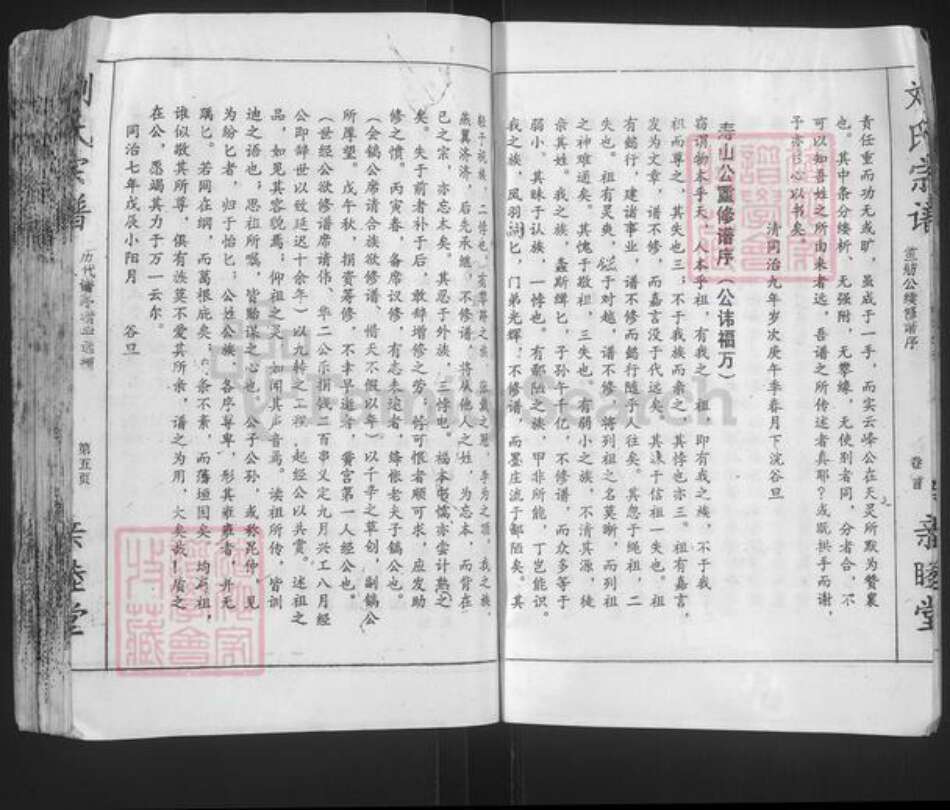 刘氏宗谱
卷首
亲睦堂
责任重而功无或旷，虽成于一手，而实云峰公在天灵所默为赞襄
也。其中条分缕析，无强附，无攀缘，无使别者同，分者合，不
可以如吾姓之所由来者远，吾谱之所传述者真耶？或既拱手而谢，
予亦
心以书矣。
清同治九年岁次庚午季春月下浣谷旦
寿山公重修谱序（公讳福万）
窃谓物本乎天，人本乎祖，有我之祖，即有我之族，不于我
祖而尊之，其失也三；不于我族而亲之，其悖也亦三。祖有嘉言，
发为文章，谱不修，而嘉言没于代远矣，其
于信祖一失也。祖
有懿行，建诸事业，谱不修而懿行随乎人往矣。其忽于绳祖，二
失也。祖有灵爽，
于对越，谱不修将列祖之名莫晰，而列祖
之神难通矣。其愧于敬祖，三失也。有弱小之族，不清其源，徒
余其姓。我之族，螽斯缉匕，子孙千亿，不修谱，而众多等于
弱小，其昧于认族，一悖也。有鄙陋之族，甲非所能，丁岂能识。
我之族，凤羽
匕，门弟光辉，不修谱，而墨庄流于鄙陋矣。其
轻于视族，二悖也。有
之族，
冠，李为之顶，我之族，
燕翼济济，后先承继，不修谱，将从他人之姓，为忘本，而背在
己之宗，亦忘本矣。其忍于外族，三悖也。福本驽懦，亦尝计熟之
矣。失于前者补于后，敢辞增修之劳；何可恨者顺可求，应发助
修之愤。丙寅春，备席议修，有志未逮者，绛帐老夫子镐公也。
（会镐公席请合族欲修谱，惜天不假以年）以千辛之草创，嗣镐公
所厚望。戊午秋，捐资筹修，不幸早逝者，黉宫第一人经公也。
（世经公欲修谱席请伟、华二公示捐钱二百串又定九月兴工八月经
公即辞世以致延迟十余年）以九转之工程，起经公以共赏。述祖之
品，如见其容貌焉；仰祖之灵，如闻其声音焉。读祖所传，皆训
迪之语也；思祖所嘱，皆贻谋之心也。公子公孙，或称昆仲，见
为纷匕者，归于怡匕；公姓公族，各序尊卑，形其雍雍者，并无
踽匕。若网在纲，而万根庇矣；有条不紊，而藩垣固矣。均
祖，
谁似敬其所尊，俱有族莫不爱其所亲，谱之为用，大矣哉！质之
在公，愿竭其力于万一云尔。
同治七年戊辰小阳月
谷旦
第五页
亲睦堂